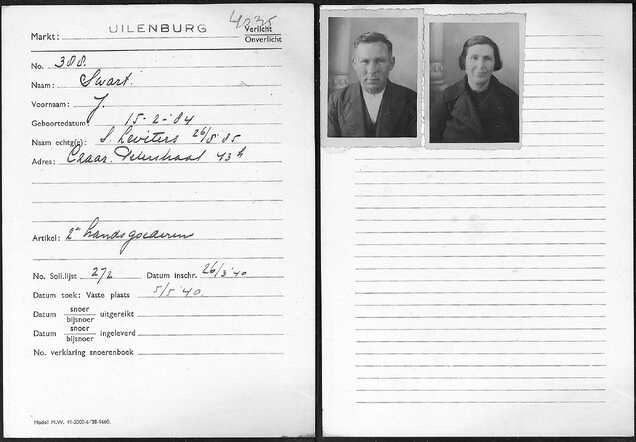 Markt: UILENBURG 4235 Verlicht
Onverlicht
No. 388.
Naam: Swart.
Voornaam: J.
Geboortedatum: 15-2-'84
Naam echtg(n): S. Leviters 26/5 '85
Adres: Czaar Peterstraat 43h
Artikel: 2e handsgoederen
No. Soll.lijst 272 Datum inschr. 26/3 '40
Datum toek: Vaste plaats 5/5 '40.
Datum snoer/bijsnoer uitgereikt
Datum snoer/bijsnoer ingeleverd
No. verklaring snoerenboek
Model M.W.